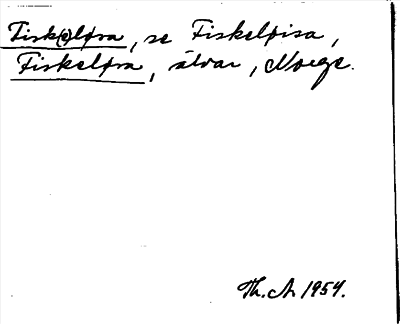 Fisk(e)løra, se Fiskeløisa,
Fiskeløra, älvar, Norge.
Th. A. 1954.